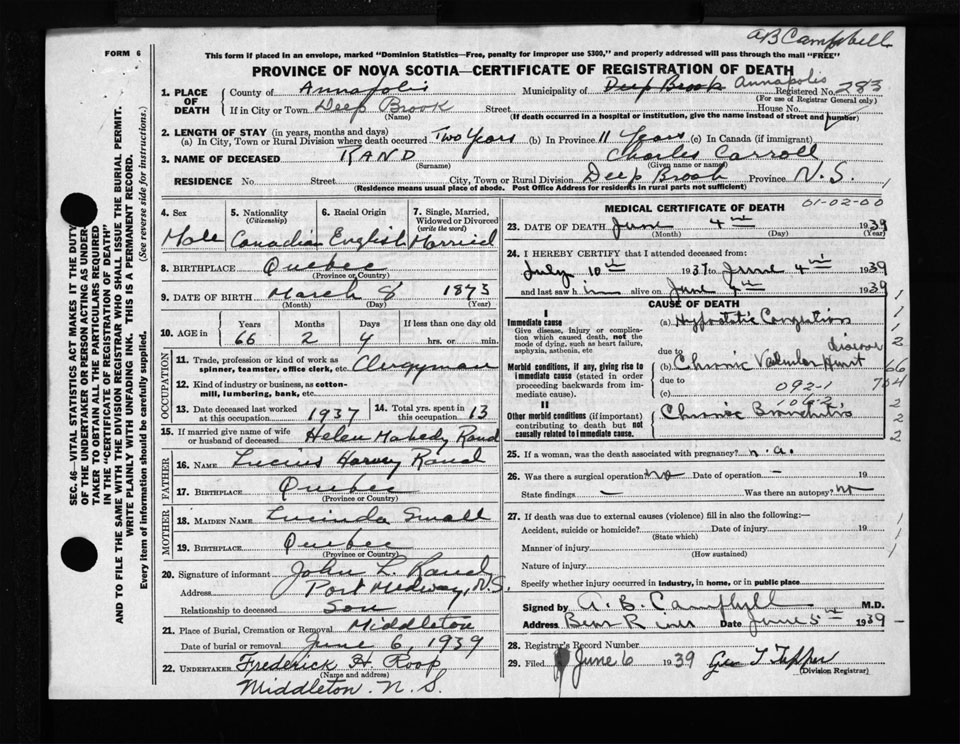 A B Campbell
FORM 6
This form if placed in an envelope, marked "Dominion Statistics—Free, penalty for improper use $300," and properly addressed will pass through the mail "FREE"
PROVINCE OF NOVA SCOTIA—CERTIFICATE OF REGISTRATION OF DEATH
1. PLACE OF DEATH County of Annapolis Municipality of Deep Brook Annapolis Registered No. 283
(For use of Registrar General only)
If in City or Town Deep Brook Street House No.
(Name) (If death occurred in a hospital or institution, give the name instead of street and number)
2. LENGTH OF STAY (in years, months and days)
(a) In City, Town or Rural Division where death occurred Two Years (b) In Province 11 Years (c) In Canada (if immigrant)
3. NAME OF DECEASED RAND Charles Carroll
(Surname) (Given name or name)
RESIDENCE No. Street City, Town or Rural Division Deep Brook Province N.S.
(Residence means usual place of abode. Post Office Address for residents in rural parts not sufficient)
SEC. 46—VITAL STATISTICS ACT MAKES IT THE DUTY OF THE UNDERTAKER OR PERSON ACTING AS UNDERTAKER TO OBTAIN ALL THE PARTICULARS REQUIRED IN THE "CERTIFICATE OF REGISTRATION OF DEATH" AND TO FILE THE SAME WITH THE DIVISION REGISTRAR WHO SHALL ISSUE THE BURIAL PERMIT.
WRITE PLAINLY WITH UNFADING INK. THIS IS A PERMANENT RECORD.
Every item of information should be carefully supplied. (See reverse side for instructions.)
4. Sex Male
5. Nationality (Citizenship) Canadian
6. Racial Origin English
7. Single, Married, Widowed or Divorced (write the word) Married
8. BIRTHPLACE Quebec
(Province or Country)
9. DATE OF BIRTH March 8 1873
(Month) (Day) (Year)
10. AGE in Years Months Days If less than one day old
66 2 4 hrs. or min.
OCCUPATION
11. Trade, profession or kind of work as spinner, teamster, office clerk, etc. Clergyman
12. Kind of industry or business, as cotton-mill, lumbering, bank, etc.
13. Date deceased last worked at this occupation 1937 14. Total yrs. spent in this occupation 13
15. If married give name of wife or husband of deceased Helen Mabedy Rand
FATHER
16. NAME Lucius Harvey Rand
17. BIRTHPLACE Quebec
(Province or Country)
MOTHER
18. MAIDEN NAME Lucinda Small
19. BIRTHPLACE Quebec
(Province or Country)
20. Signature of informant John L. Rand
Address Port Medway, N.S.
Relationship to deceased Son
21. Place of Burial, Cremation or Removal Middleton
Date of burial or removal June 6, 1939
22. UNDERTAKER Frederick H Roop
(Name and address)
Middleton. N.S.
MEDICAL CERTIFICATE OF DEATH 01-02-00
23. DATE OF DEATH June 4th 1939
(Month) (Day) (Year)
24. I HEREBY CERTIFY that I attended deceased from:
July 10th 1937 to June 4th 1939
and last saw him alive on June 4th 1939
CAUSE OF DEATH
I
Immediate cause (a) Hypostatic Congestion
Give disease, injury or complication which caused death, not the mode of dying, such as heart failure, asphyxia, asthenia, etc
due to
Morbid conditions, if any, giving rise to immediate cause (stated in order proceeding backwards from immediate cause). (b) Chronic Valvular Heart disease
due to 092-1
(c) 106-2
II
Other morbid conditions (if important) contributing to death but not causally related to immediate cause. Chronic Bronchitis
1
1
2
66
704
2
2
2
25. If a woman, was the death associated with pregnancy? n.a.
26. Was there a surgical operation? No Date of operation – 19
State findings – Was there an autopsy? No
27. If death was due to external causes (violence) fill in also the following:—
Accident, suicide or homicide? Date of injury 19
(State which)
Manner of injury
(How sustained)
Nature of injury
Specify whether injury occurred in industry, in home, or in public place
Signed by A. B. Campbell M.D.
Address Bear River Date June 5th 1939
28. Registrar's Record Number
29. Filed June 6 1939 Geo T Tupper
(Division Registrar)